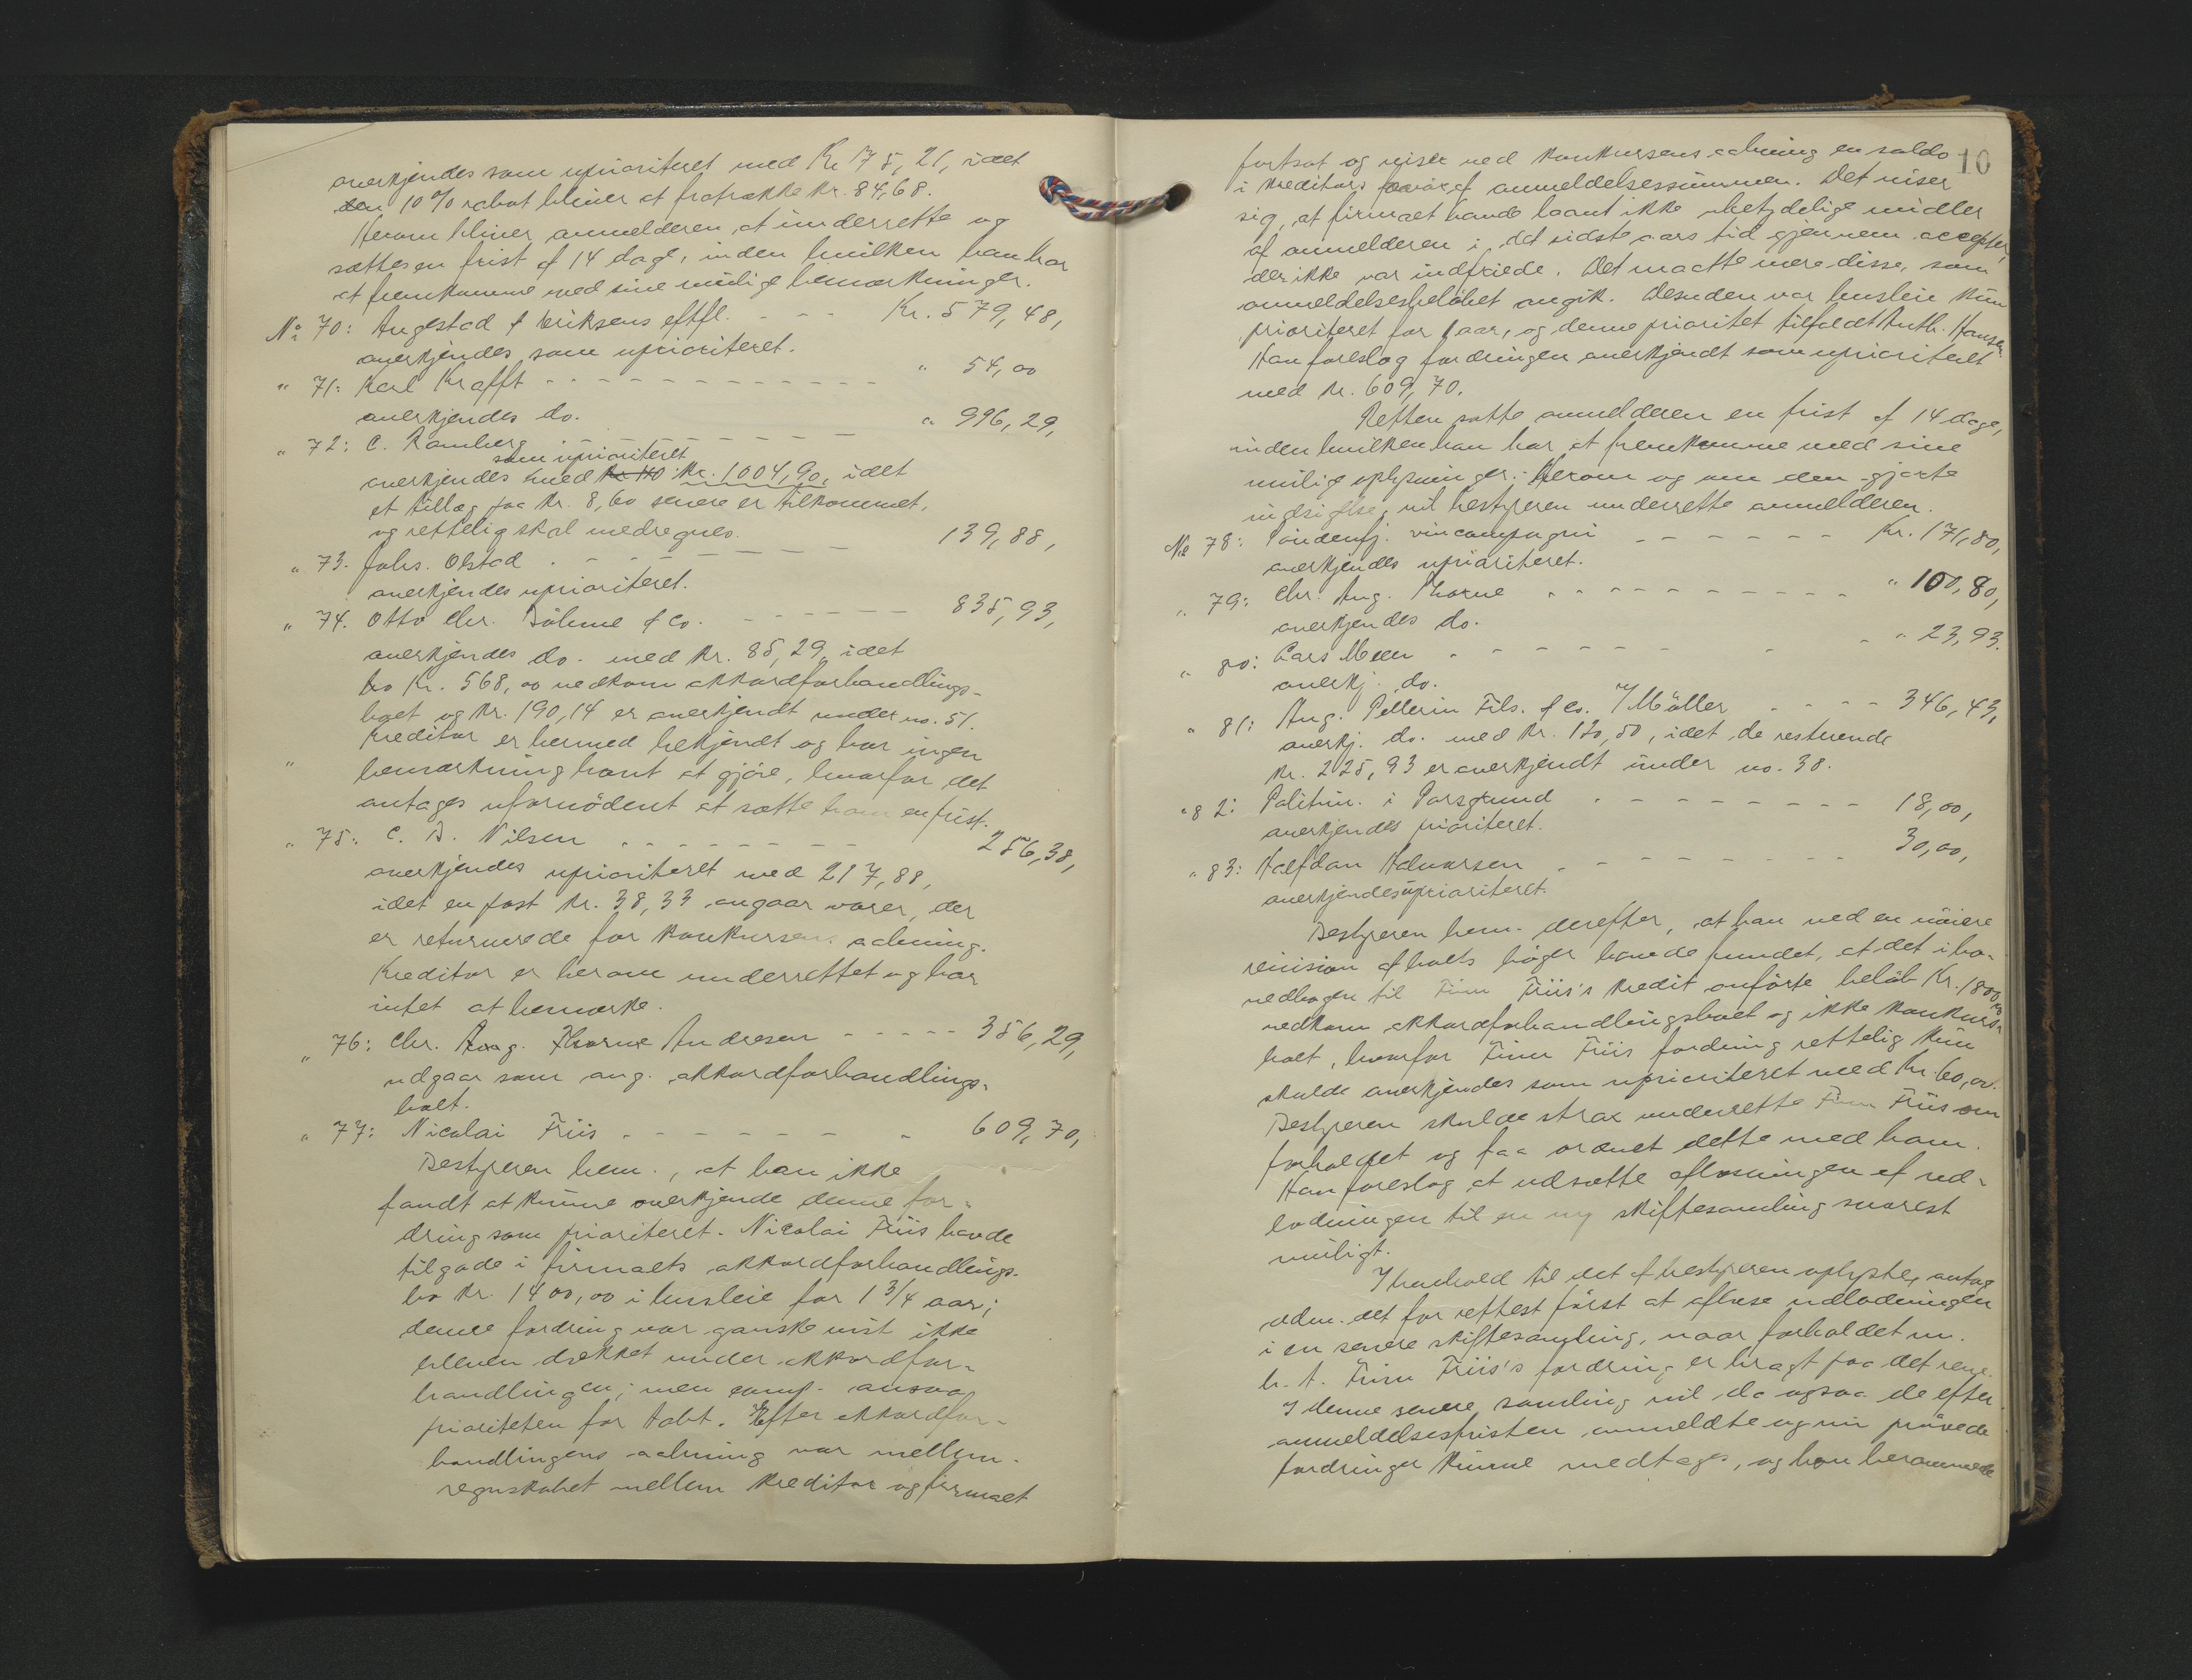 anerkjendes som uprioriteret med Kr 75,21, idet
den 10% rabat bliver at fratrække kr. 84,68.
Herom bliver anmelderen at underrette og
sættes en frist af 14 dage, inden hvilken han har
at fremkomme med sine mulige bemærkninger.
No 70: Angestad & Eriksens eftfl. - - - Kr. 579,48,
anerkjendes som uprioriteret.
" 71: Karl Krafft - - - - - - - - - - - " 54,00
anerkjendes do.
" 72: C. Ramberg - - - - - - - - - " 996,29,
som uprioriteret
anerkjendes med Kr. 1004,90, idet
et tillæg paa Kr. 8,60 senere er tilkommet,
og rettelig skal medregnes.
" 73. Johs. Olstad - - - - - - - 139,88,
anerkjendes uprioriteret.
" 74. Otto Chr. Böhme & Co. - - - - - 835,93,
anerkjendes do. med Kr. 85,29, idet
bo Kr. 568,00 vedkom akkordforhandlings-
boet og Kr. 190,14 er anerkjendt under no. 51.
Kreditor er hermed bekjendt og har ingen
" bemærkning hont at gjöre, hvorfor det
antages ufornödent at sætte ham en frist.
" 75: C. B. Nilsen - - - - - - - - 256,38,
anerkjendes uprioriteret med 217,88,
idet en post Kr. 38,33 angaar varer, der
er returnerede før konkursens aabning.
Kreditor er herom underrettet og har
intet at bemærke.
" 76: Chr. Aug. Thorne Andresen - - - - - 356,29,
udgaar som ang. akkordforhandlings-
boet.
" 77: Nicolai Friis - - - - - - - 609,70,
Bestyreren bem., at han ikke
fandt at kunne anerkjende denne for-
dring som prioriteret. Nicolai Friis havde
tilgode i firmaets akkordforhandlings-
bo Kr. 1400,00 i husleie for 1 3/4 aar;
denne fordring var ganske vist ikke
bleven dækket under akkordfor-
handlingen; men komp. ansaa
prioriteten for tabt. Efter akkordfor-
handlingens aabning var mellem-
regnskabet mellem kreditor og firmaet
10
fortsat og viste ved konkursens aabning en saldo
i kreditors favör af anmeldelsessummen. Det viser
sig, at firmaet havde laant ikke ubetydelige midler
af anmelderen i det sidste aars tid gjennem accepter,
der ikke var indfriede. Det maatte være disse, som
anmeldelsesbelöbet angik. Desuden var husleie kun
prioriteret for 1 aar, og denne prioritet tilfaldt Anth. Hansen.
Han foreslog fordringen anerkjendt som uprioriteret
med Kr. 609,70.
Retten satte anmelderen en frist af 14 dage,
inden hvilken han har at fremkomme med sine
mulige oplysninger. Herom og om den gjorte
indsigelse, vil bestyreren underrette anmelderen.
No 78: Söndenfj. vincompagni - - - - - - Kr. 171,80,
anerkjendes uprioriteret.
" 79: Chr. Aug. Thorne - - - - - - - - - - " 100,80,
anerkjendes do.
" 80: Lars Moen - - - - - - - - " 23,93.
anerkj. do.
" 81: Aug. Pellerin Fils. & Co. ./. Möller - - - - 346,43,
anerkj. do. med Kr. 120,50, idet de resterende
Kr. 225,93 er anerkjendt under no. 38.
" 82: Politim. i Porsgrund - - - - - - - - 18,00,
anerkjendes prioriteret.
" 83: Halfdan Halvorsen - - - - - - - - 30,00,
anerkjendes uprioriteret.
Bestyreren bem. derefter, at han ved en nöiere
revision af boets böger havde fundet, at det i ho-
vedbogen til Finn Friis's kredit anförte belöb Kr. 1800,00
vedkom akkordforhandlingsboet og ikke konkurs-
boet, hvorfor Finn Friis fordring rettelig kun
skulde anerkjendes som uprioriteret med Kr. 60,00.
Bestyreren skulde strax underrette Finn Friis om
forholdet og faa ordnet dette med ham.
Han foreslog at udsætte aflæsningen af ud-
lodningen til en ny skiftesamling snarest
muligt.
I henhold til det af bestyreren oplyste, antog
adm. det for rettest först at aflæse udlodningen
i en senere skiftesamling, naar forholdet m.
h. t. Finn Friis's fordring er bragt paa det rene.
I denne senere samling vil da ogsaa de efter
anmeldelsesfristen anmeldte og nu prövede
fordringer kunne medtages, og han berammede